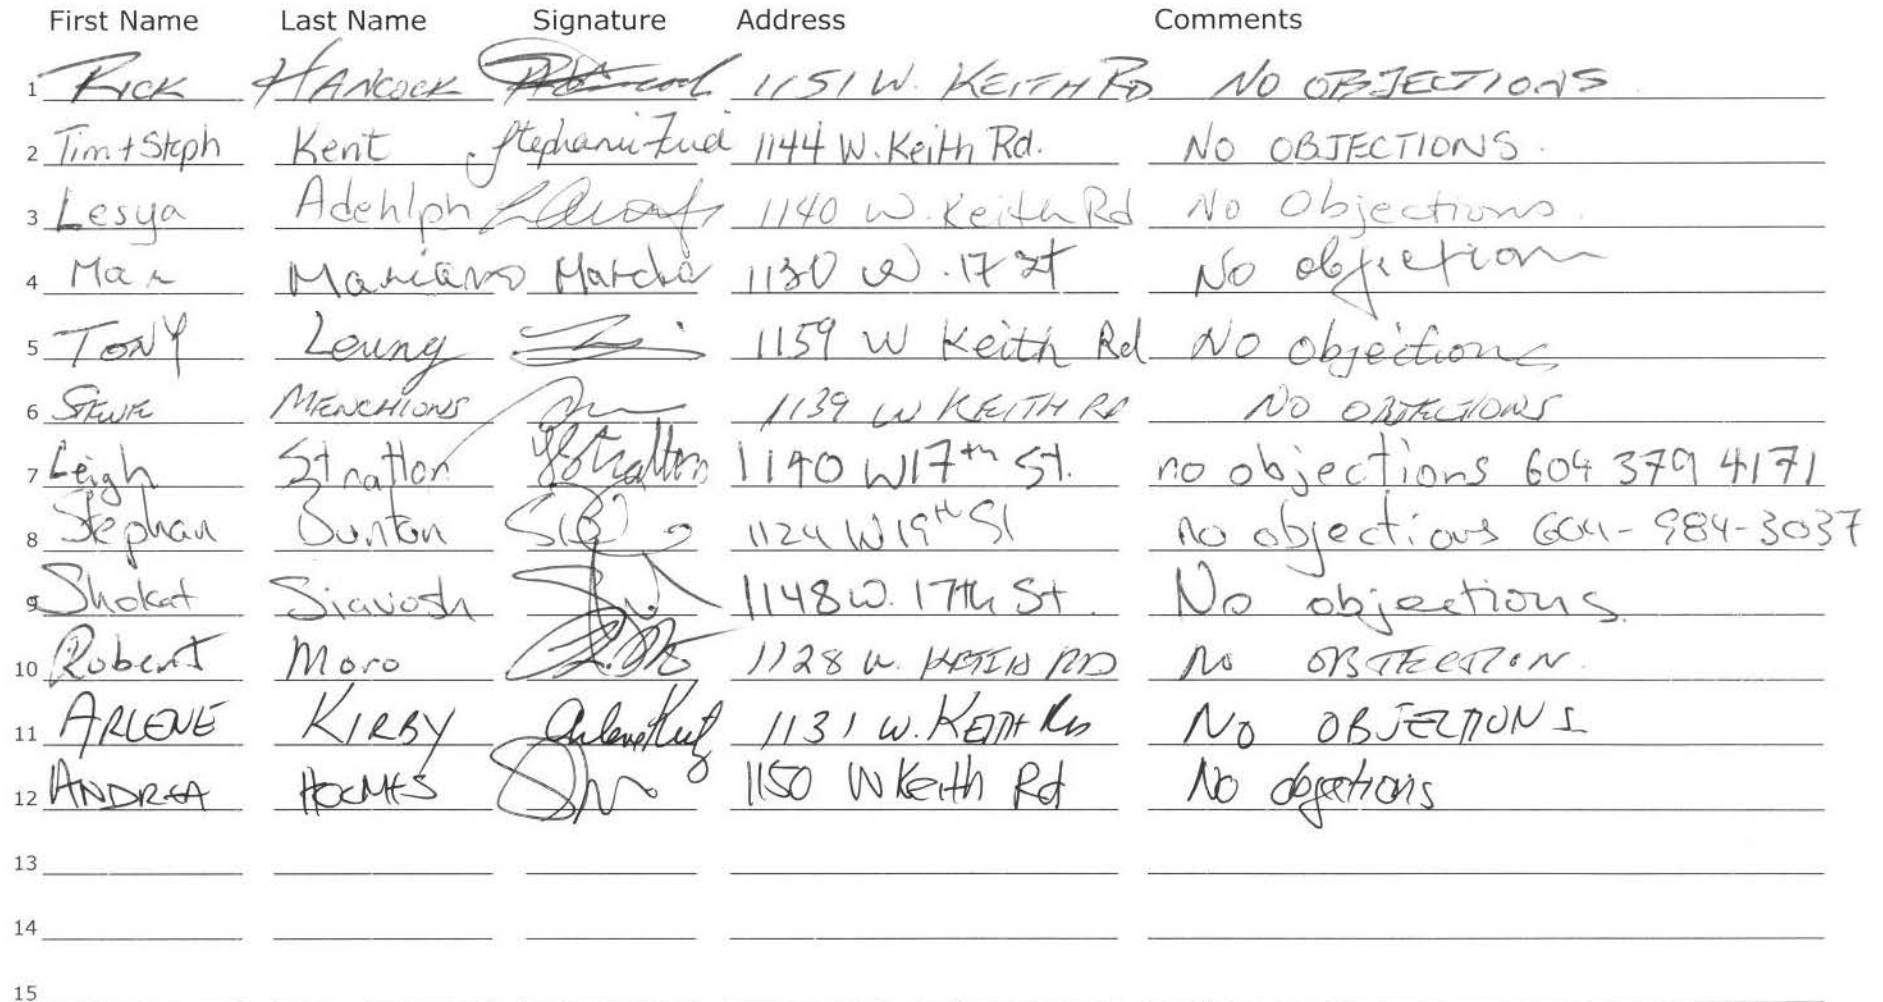 First Name Last Name Signature Address Comments
1 RICK HANCOCK 1151 W. KEITH RD NO OBJECTIONS
2 Tim + Steph Kent 1144 W. Keith Rd. NO OBJECTIONS.
3 Lesya 1140 W. Keith Rd No Objections.
4 Mariano 1130 W. 17 st No objection
5 TONY Leung 1159 W Keith Rd No Objections
6 STEVE MENCHIONS 1139 W KEITH RD NO OBJECTIONS
7 Leigh Stratton 1140 W 17th St. no objections 604 379 4171
8 Stephan Bunton 1124 W 19th St no objections 604-984-3037
9 Shokat Siavosh 1148 W. 17th St. No objections.
10 Robert Moro 1128 W. KEITH RD NO OBJECTION.
11 ARLENE KIRBY 1131 W. KEITH RD NO OBJECTIONS
12 ANDREA HOLMES 1150 W Keith Rd No objections
13
14
15